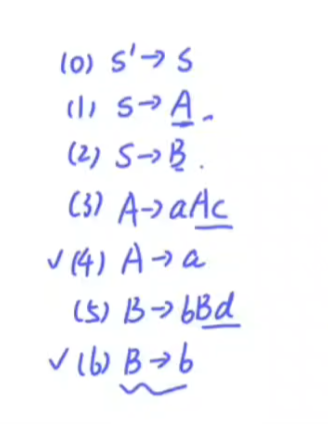 (0) S'→S
(1) S→A.
(2) S→B.
(3) A→aAc
✓(4) A→a
(5) B→bBd
✓(6) B→b